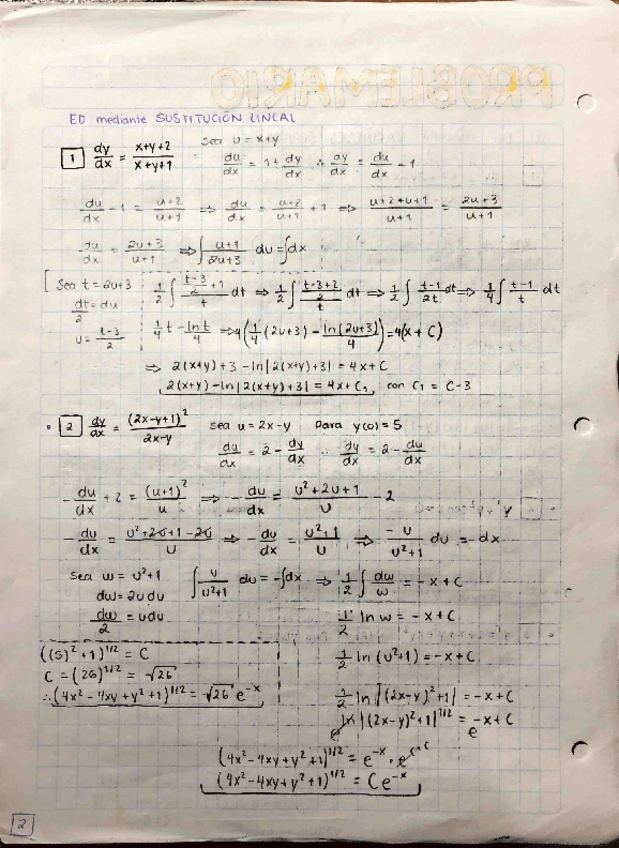 PROBLEMARIO
ED mediante SUSTITUCIÓN LINEAL
1 dy/dx = x+y+2/x+y+1 Sea u = x+y
du/dx = 1 + dy/dx ∴ dy/dx = du/dx - 1
du/dx - 1 = u+2/u+1 ⇒ du/dx = u+2/u+1 + 1 ⇒ u+2+u+1/u+1 = 2u+3/u+1
du/dx = 2u+3/u+1 ⇒ ∫ u+1/2u+3 du = ∫dx
Sea t = 2u+3
dt/2 = du
u = t-3/2
1/2 ∫ (t-3/2 + 1)/t dt ⇒ 1/2 ∫ (t-3+2/2)/t dt ⇒ 1/2 ∫ t-1/2t dt ⇒ 1/4 ∫ t-1/t dt
1/4 t - ln t/4 ⇒ 4(1/4 (2u+3) - ln(2u+3)/4) = 4(x + C)
⇒ 2(x+y) + 3 - ln|2(x+y)+3| = 4x + C
2(x+y) - ln|2(x+y)+3| = 4x + C₁, con C₁ = C-3
2 dy/dx = (2x-y+1)²/2x-y Sea u = 2x-y Para y(0) = 5
du/dx = 2 - dy/dx ∴ dy/dx = 2 - du/dx
- du/dx + 2 = (u+1)²/u ⇒ - du/dx = u²+2u+1/u - 2
- du/dx = u²+2u+1-2u/u ⇒ - du/dx = u²+1/u ⇒ -u/u²+1 du = -dx
Sea w = u²+1
dw = 2u du
dw/2 = u du
∫ u/u²+1 du = -∫dx ⇒ 1/2 ∫ dw/w = -x + C
1/2 ln w = -x + C
1/2 ln (u²+1) = -x + C
1/2 ln |(2x-y)²+1| = -x + C
e ln |(2x-y)²+1|^1/2 = e -x + C
((5)²+1)^1/2 = C
C = (26)^1/2 = √26
∴ (4x²-4xy+y²+1)^1/2 = √26 e^-x
(4x²-4xy+y²+1)^1/2 = e^-x · e^C
(4x²-4xy+y²+1)^1/2 = Ce^-x
2